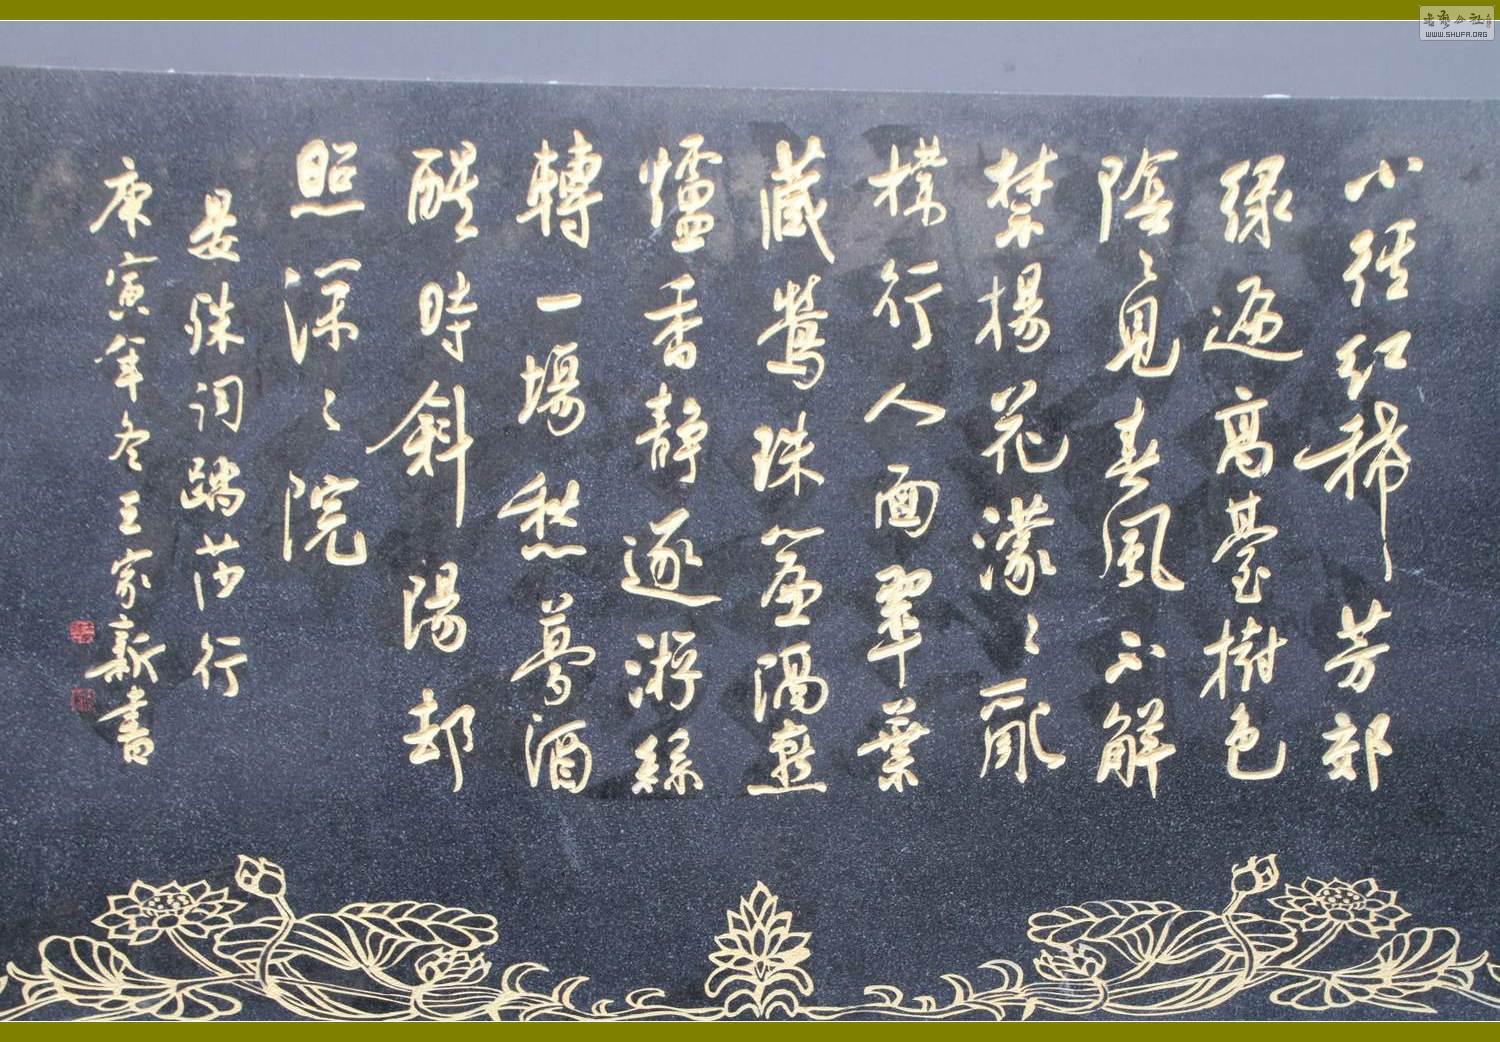 小径红稀芳郊
绿遍高臺樹色
陰陰見春風不解
禁楊花濛濛亂
撲行人面翠葉
藏鶯珠簾隔燕
爐香静逐游絲
轉一場愁夢酒
醒時斜陽却
照深深院
晏殊词踏莎行
庚寅年冬王家新書
WWW.SHUFA.ORG